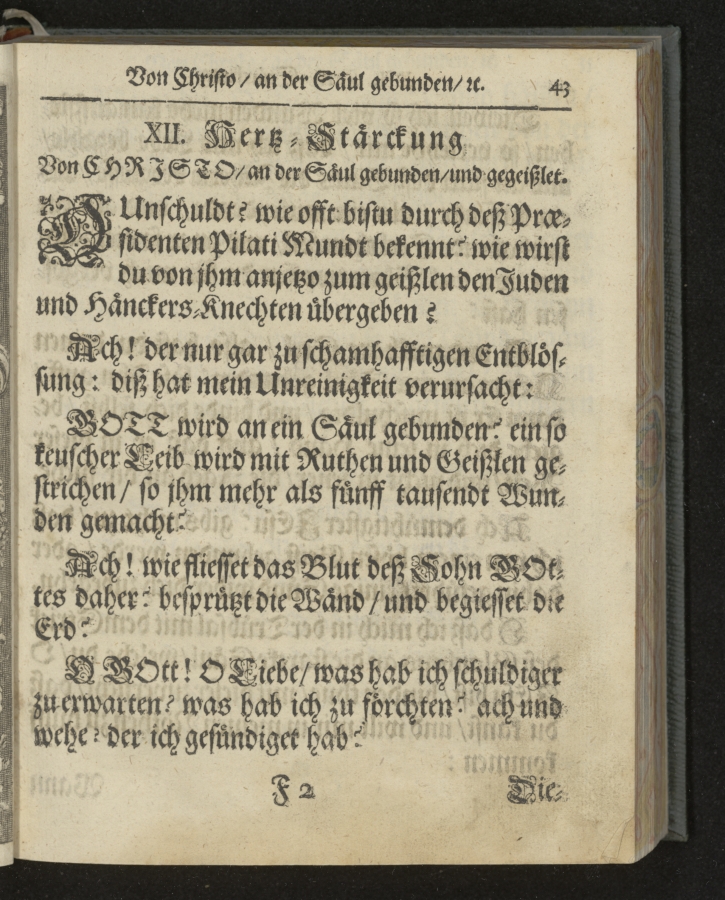 Von Christo / an der Säul gebunden / ꝛc. 43
XII. Hertz-Stärckung
Von CHRISTO / an der Säul gebunden / und gegeißlet.
O Unschuldt? wie offt bistu durch deß Præ-
sidenten Pilati Mundt bekennt? wie wirst
du von jhm anjetzo zum geißlen den Juden
und Hänckers-Knechten übergeben?
Ach! der nur gar zu schamhafftigen Entblös-
sung: diß hat mein Unreinigkeit verursacht:
GOTT wird an ein Säul gebunden? ein so
keuscher Leib wird mit Ruthen und Geißlen ge-
strichen / so jhm mehr als fünff tausendt Wun-
den gemacht?
Ach! wie fliesset das Blut deß Sohn GOt-
tes daher? besprützt die Wänd / und begiesset die
Erd?
O GOtt! O Liebe / was hab ich schuldiger
zu erwarten? was hab ich zu förchten? ach und
wehe? der ich gesündiget hab?
F 2 Die-